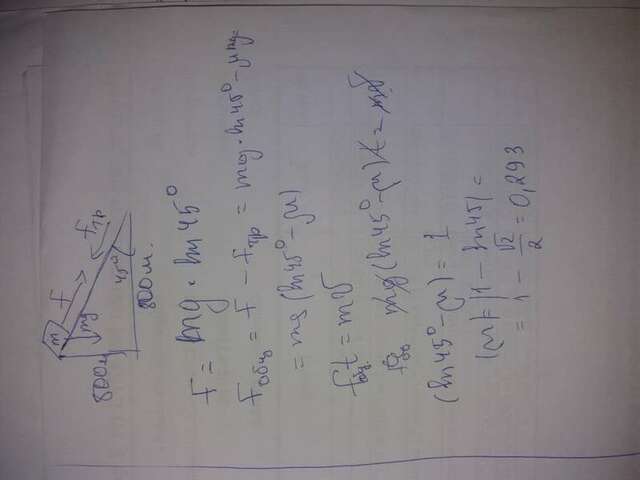 m
F
mg
Fтр
800м
45°
800м.
F = mg · sin 45°
Fобщ = F − Fтр = mg · sin 45° − μ mg =
= mg (sin 45° − μ)
Fобщ t = mV
mg (sin 45° − μ) t = mV
(sin 45° − μ) = 1
|μ| = |1 − sin 45| =
= 1 − √2/2 = 0,293